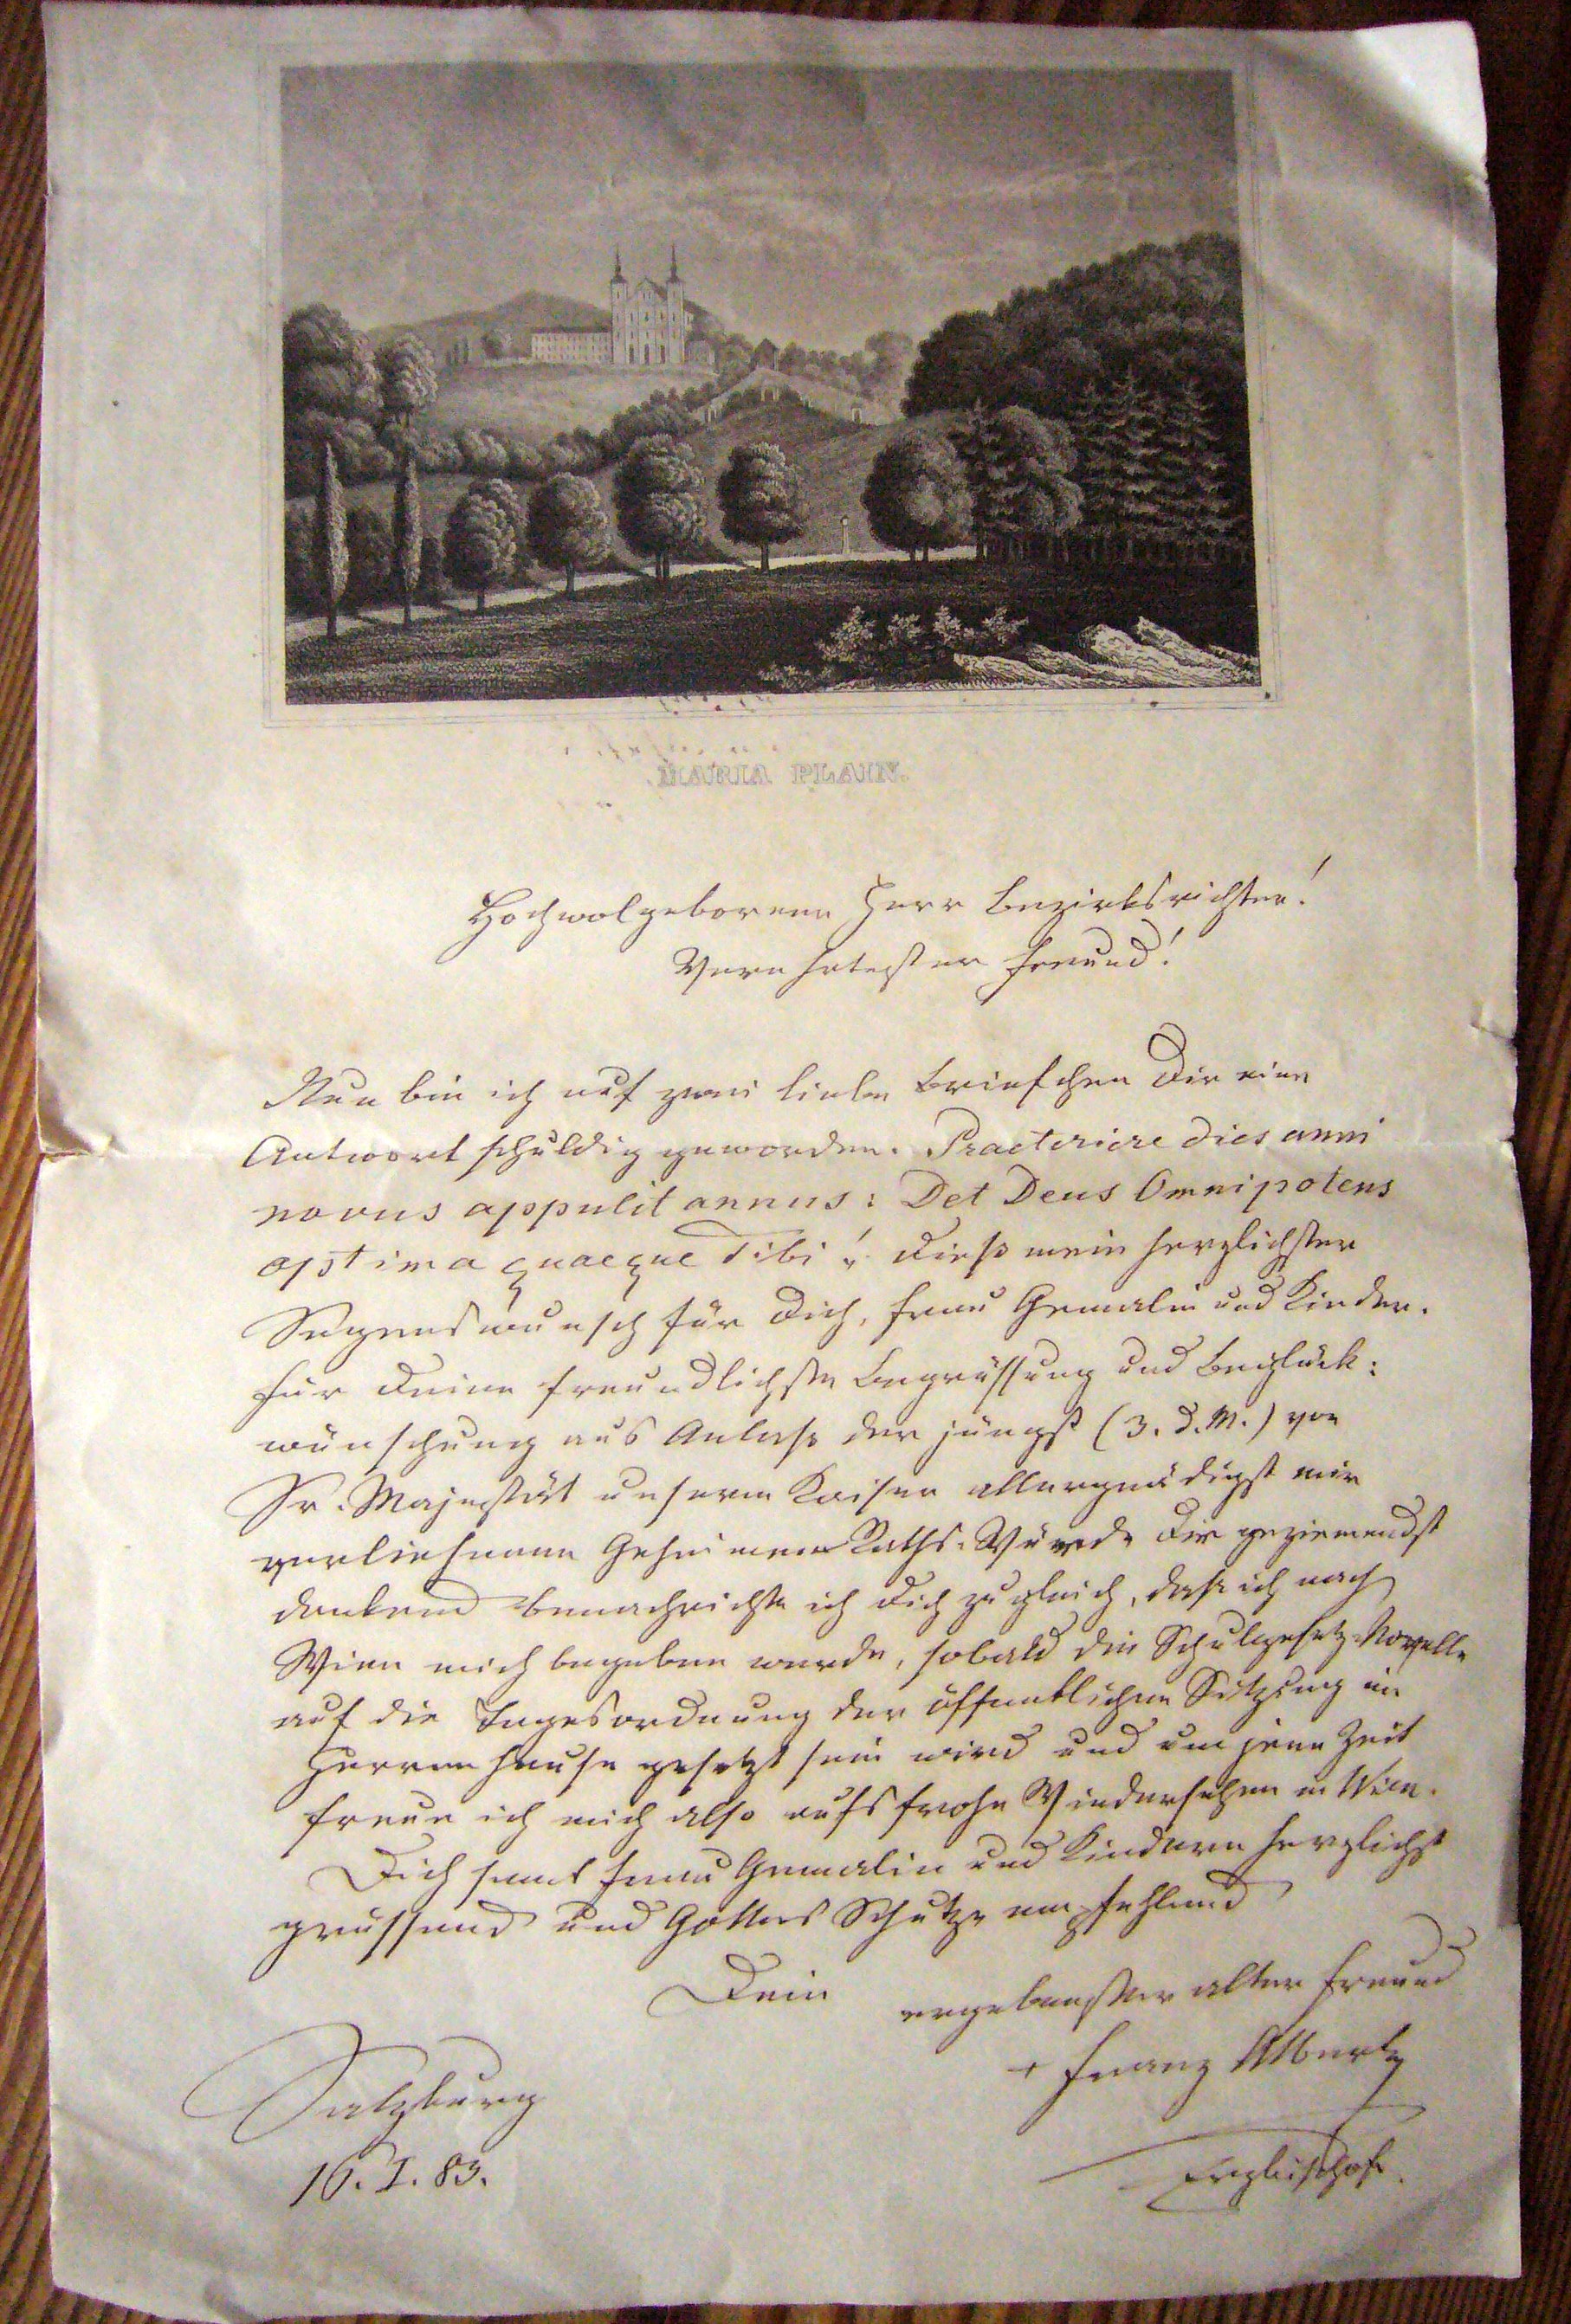 MARIA PLAIN.
Hochwolgeborener Herr Bezirksrichter!
Verehrtester Freund!
Nun bin ich auf zwei liebe Briefchen Dir eine
Antwort schuldig geworden. Praeteriere dies anni
novus appulit annus: Det Deus Omnipotens
optima quaeque Tibi! Dieß mein herzlichster
Segenswunsch für Dich, Frau Gemalin und Kinder.
Für Deine freundlichste Begrüssung und Beglück:
wünschung aus Anlaß der jüngst (3. d. M.) von
Sr. Majestät unserem Kaiser allergnädigst mir
verliehenen Geheimen Raths-Würde Dir geziemendst
dankend benachrichte ich Dich zugleich, daß ich nach
Wien mich begeben werde, sobald die Schulgesetz-Novelle
auf die Tagesordnung der öffentlichen Sitzung im
Herrenhause gesetzt sein wird und um jene Zeit
freue ich mich also aufs frohe Wiedersehen in Wien.
Dich samt Frau Gemalin und Kindern herzlichst
grüssend und Gottes Schutze empfehlend
Dein ergebenster alter Freund
+ Franz Albert
Erzbischof.
Salzburg
16. I. 83.